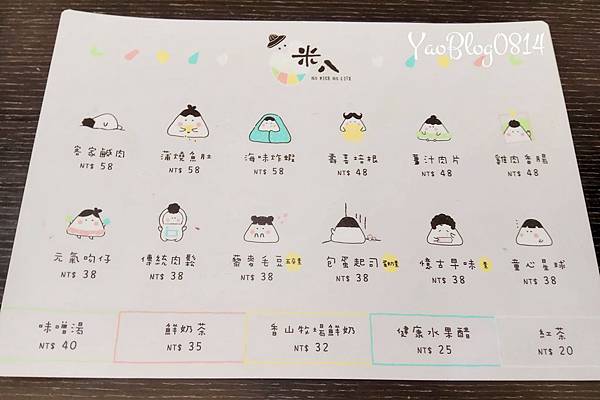 YaoBlog0814
米八
NO RICE NO LIFE
客家鹹肉 蒲燒魚肚 海味炸蝦 壽喜培根 薑汁肉片 雞肉香腸
NT$ 58 NT$ 58 NT$ 58 NT$ 48 NT$ 48 NT$ 48
元氣吻仔 傳統肉鬆 藜麥毛豆 五辛素 包蛋起司 蛋奶素 憶古早味 素 童心星球
NT$ 38 NT$ 38 NT$ 38 NT$ 38 NT$ 38 NT$ 38
味噌湯 鮮奶茶 香山牧場鮮奶 健康水果醋 紅茶
NT$ 40 NT$ 35 NT$ 32 NT$ 25 NT$ 20